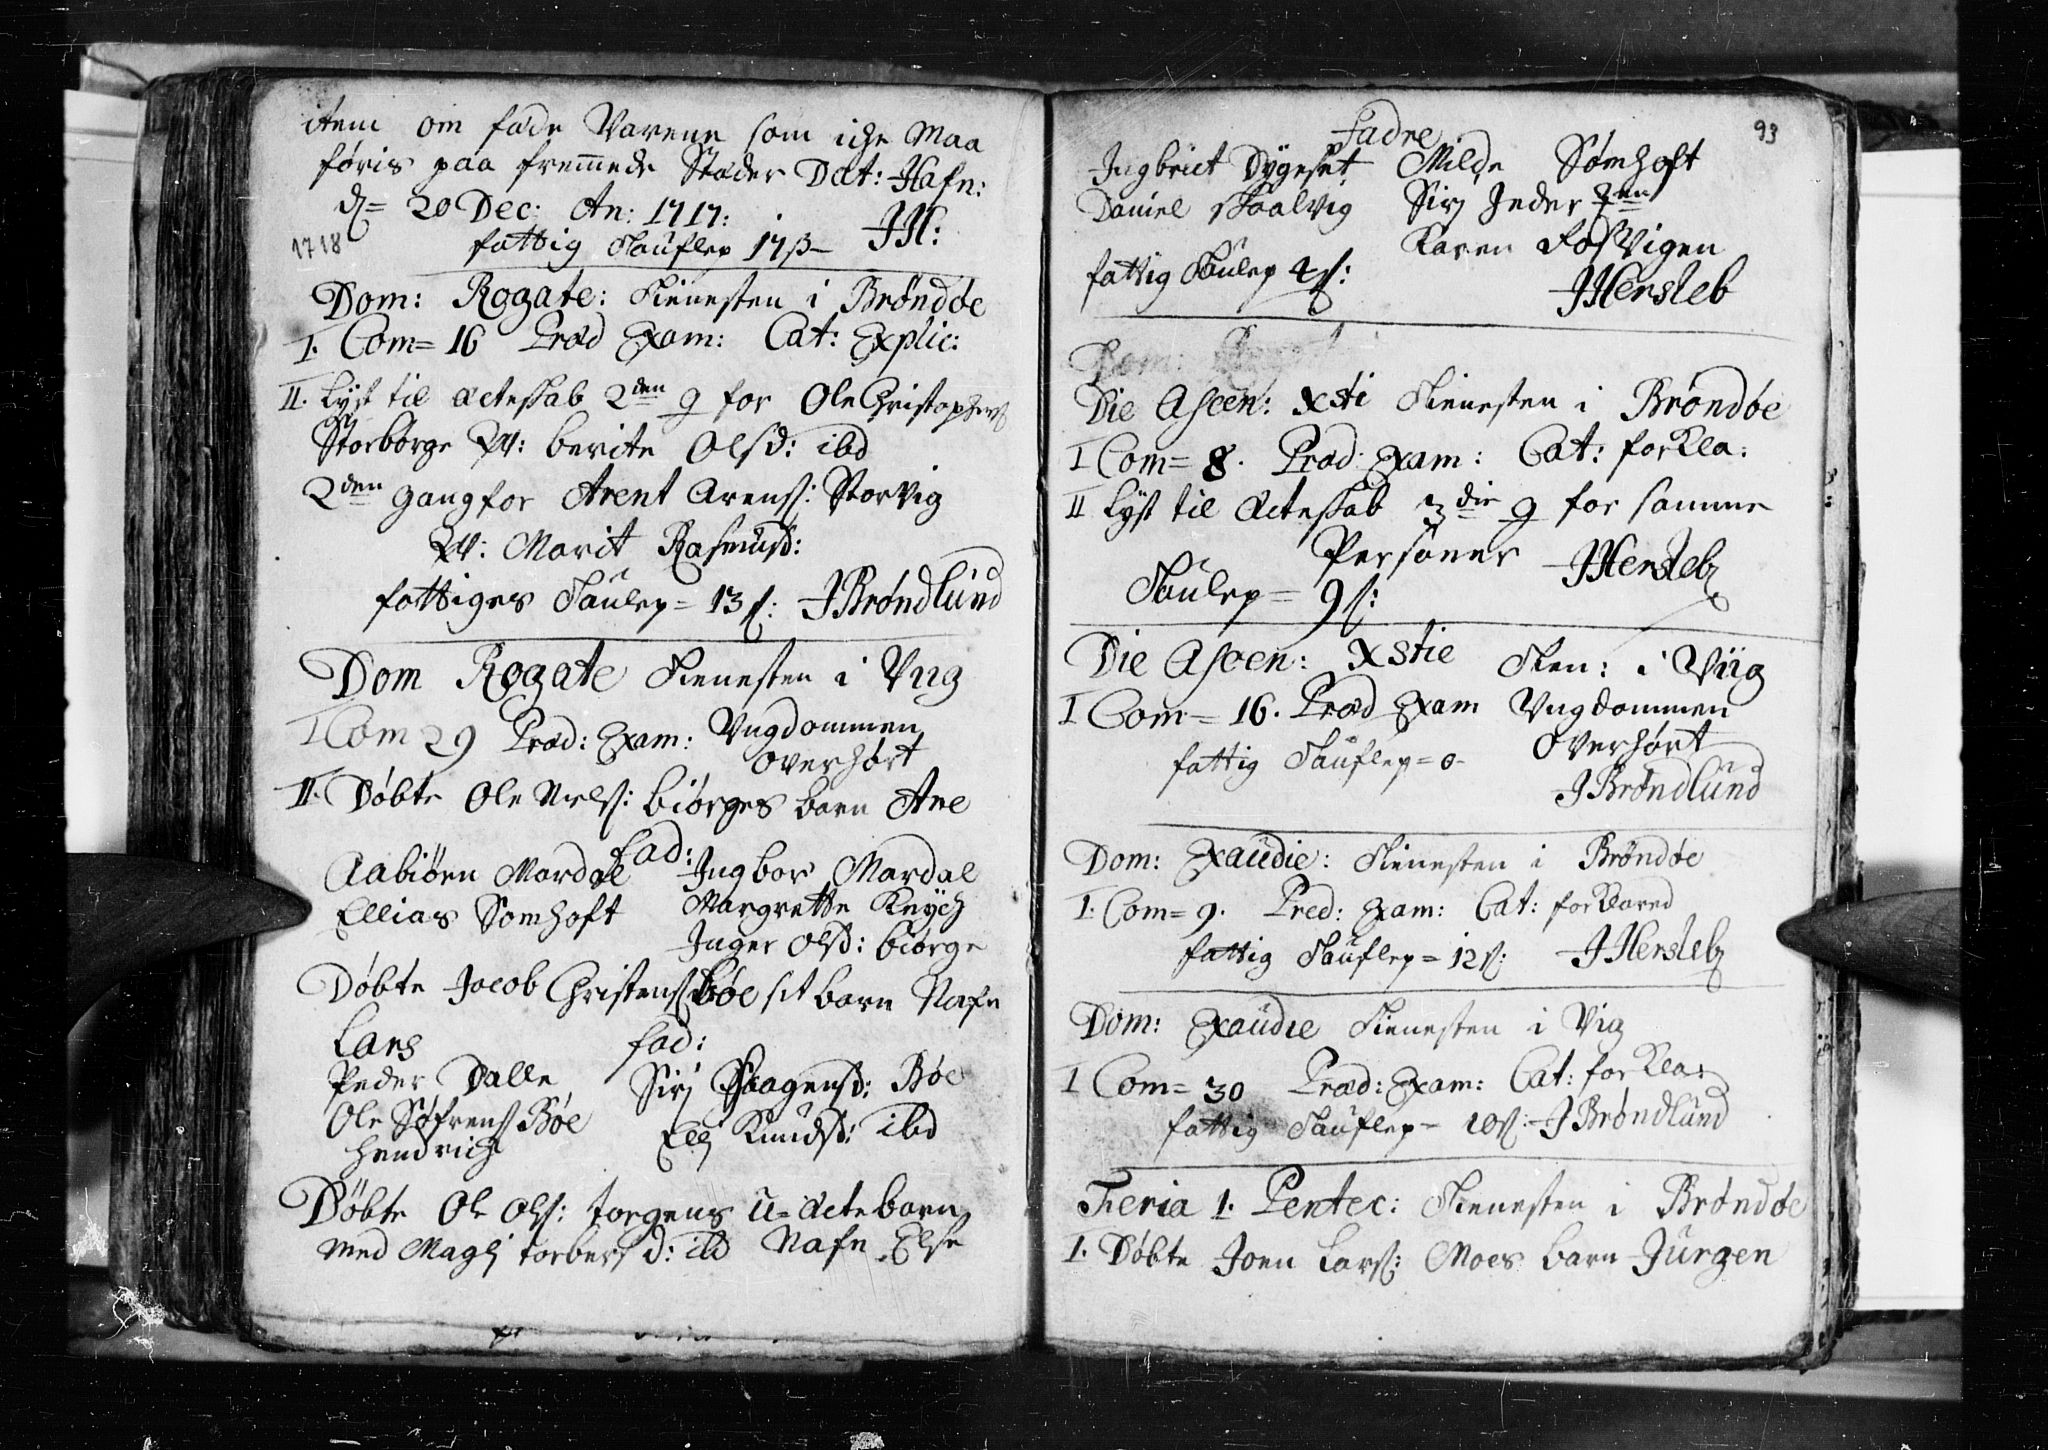 item om føde Varene som iche Maa
føris paa fremede Stæder Dat: Hafn:
d= 20 Dec: An: 1717:
1718
fattig Tauflep 17 β JH:
Dom: Rogate: Tienesten i Brøndøe
I. Com= 16 Præd Exam: Cat: Explic:
II. Lyst til ecteskab 2den g for Ole Christophers
Storbørge Qv: berite Olsd: ibd
2den gang for Arent Arens: Storvig
Qv: Marit Rasmusd:
fattiges Taulep = 13 s: JBrøndlund
Dom Rogate Tienesten i Viig
I Com 29 Præd: Exam: Vngdommen
overhørt
II. Døbte Ole Nels: biørges barn Ane
Fad:
Aabiørn Mardal Ingbor Mardal
Ellias Somhoft Margrette
Inger Olsd: biørge
Døbte Jacob Christens bøe sit barn Nafn
Lars fad:
Peder Dalle Siri Haagensd: Bøe
Ole Søfrens Bøe Elli Knudsd: ibd
Hendrich
Døbte Ole Ols: torgens u=ecte barn
med Magli torbersd: ibd Nafn Else
93
Fadre
Ingbrict Dygeset Milde Sømhoft
Daniel Skaalvig Siri Jeder
Karen Fosvigen
fattig Taulep 4 s:
JHersleb
Die Ascen: Xsti Tienesten i Brøndøe
I Com= 8. Præd: Exam: Cat: forkla:
II Lyst til Ecteskab 3die g for samme
Personer JHersleb
Taulep = 9 s:
Die Ascen: Xstie Tien: i Viig
I Com= 16. Præd Exam Vngdommen
overhørt
fattig Tauflep = 0-
JBrøndlund
Dom: Exaudie: Tienesten i Brøndøe
I. Com= 9. Præd: Exam: Cat: forklared
fattig Tauflep = 12 s: JHersleb
Dom: Exaudie Tienesten i Vig
I Com= 30 Præd: Exam: Cat: forkla:
fattig Tauflep - 10 s: JBrøndlund
Feria 1. Pentec: Tienesten i Brøndøe
I. Døbte Joen Lars: Moes barn Jurgen